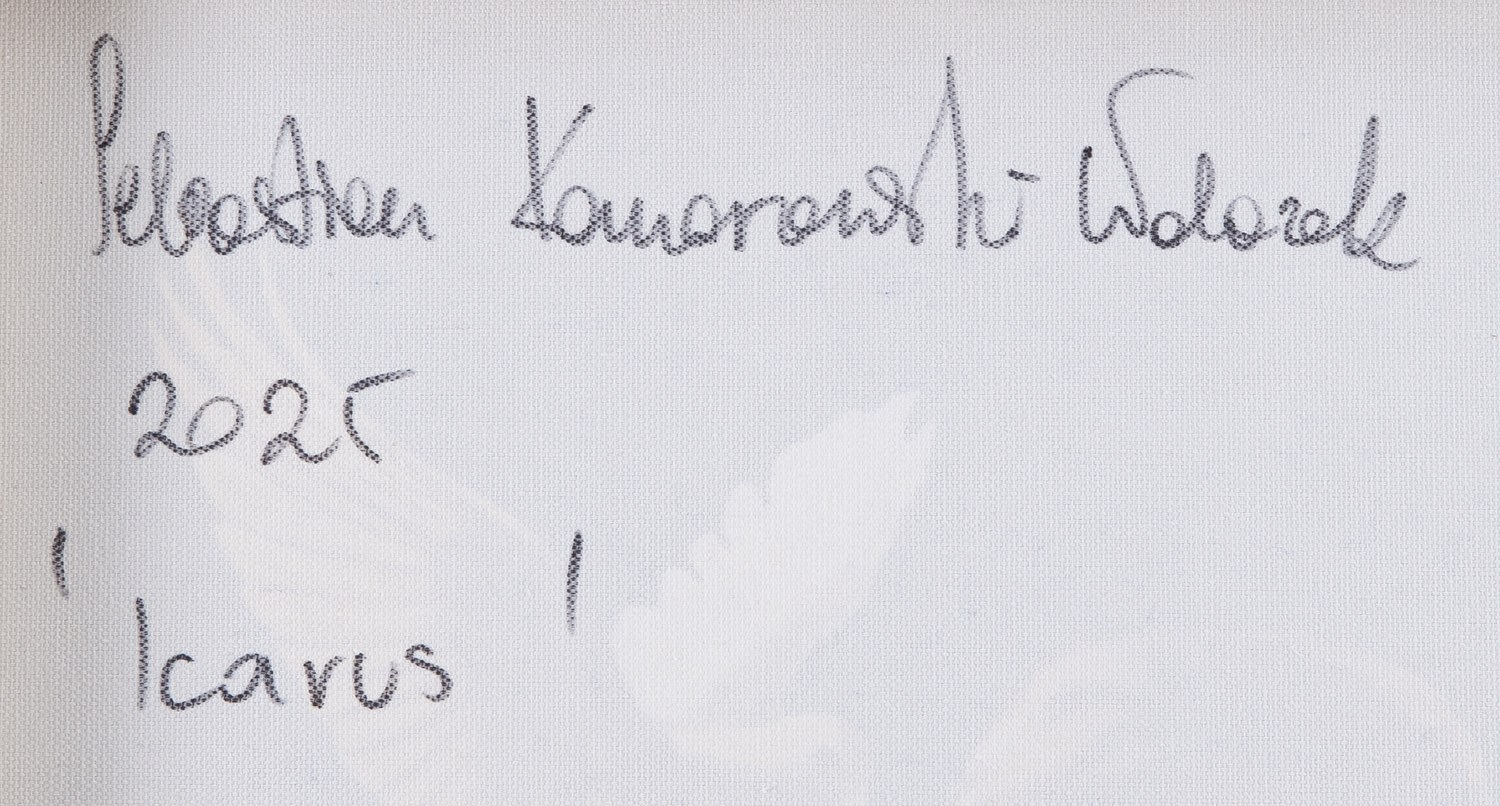 Sebastian Komorowski Wdorek
2025
'Icarus'